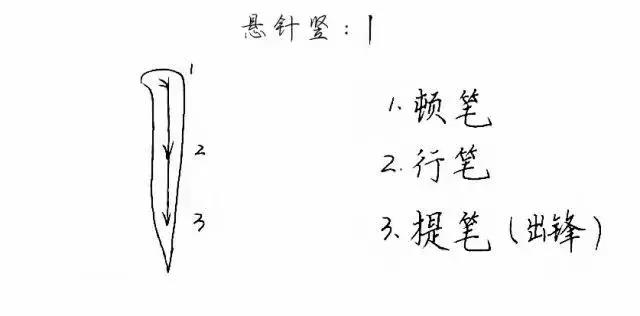 悬针竖:丨
1
2
3
1.顿笔
2.行笔
3.提笔(出锋)